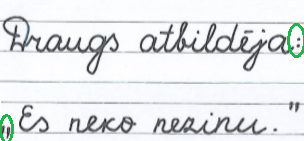 Draugs atbildēja:
„Es neko nezinu."